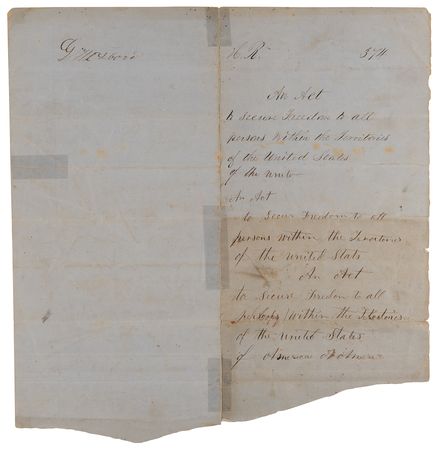 H. R. 374
An Act
to secure Freedom to all
persons within the Territories
of the United States
of the Unite
An Act
to Secure Freedom to all
persons within the Territories
of the United Stats
An Act
to Secure Freedom to all
persons within the Teretories
of the United States
of American